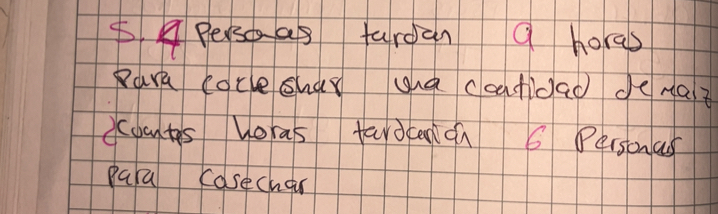 5. 4 Personas tardan 9 horas
Para cocechar una cantidad de maiz
¿Cuantas horas tardarian 6 Personas
Para cosechar